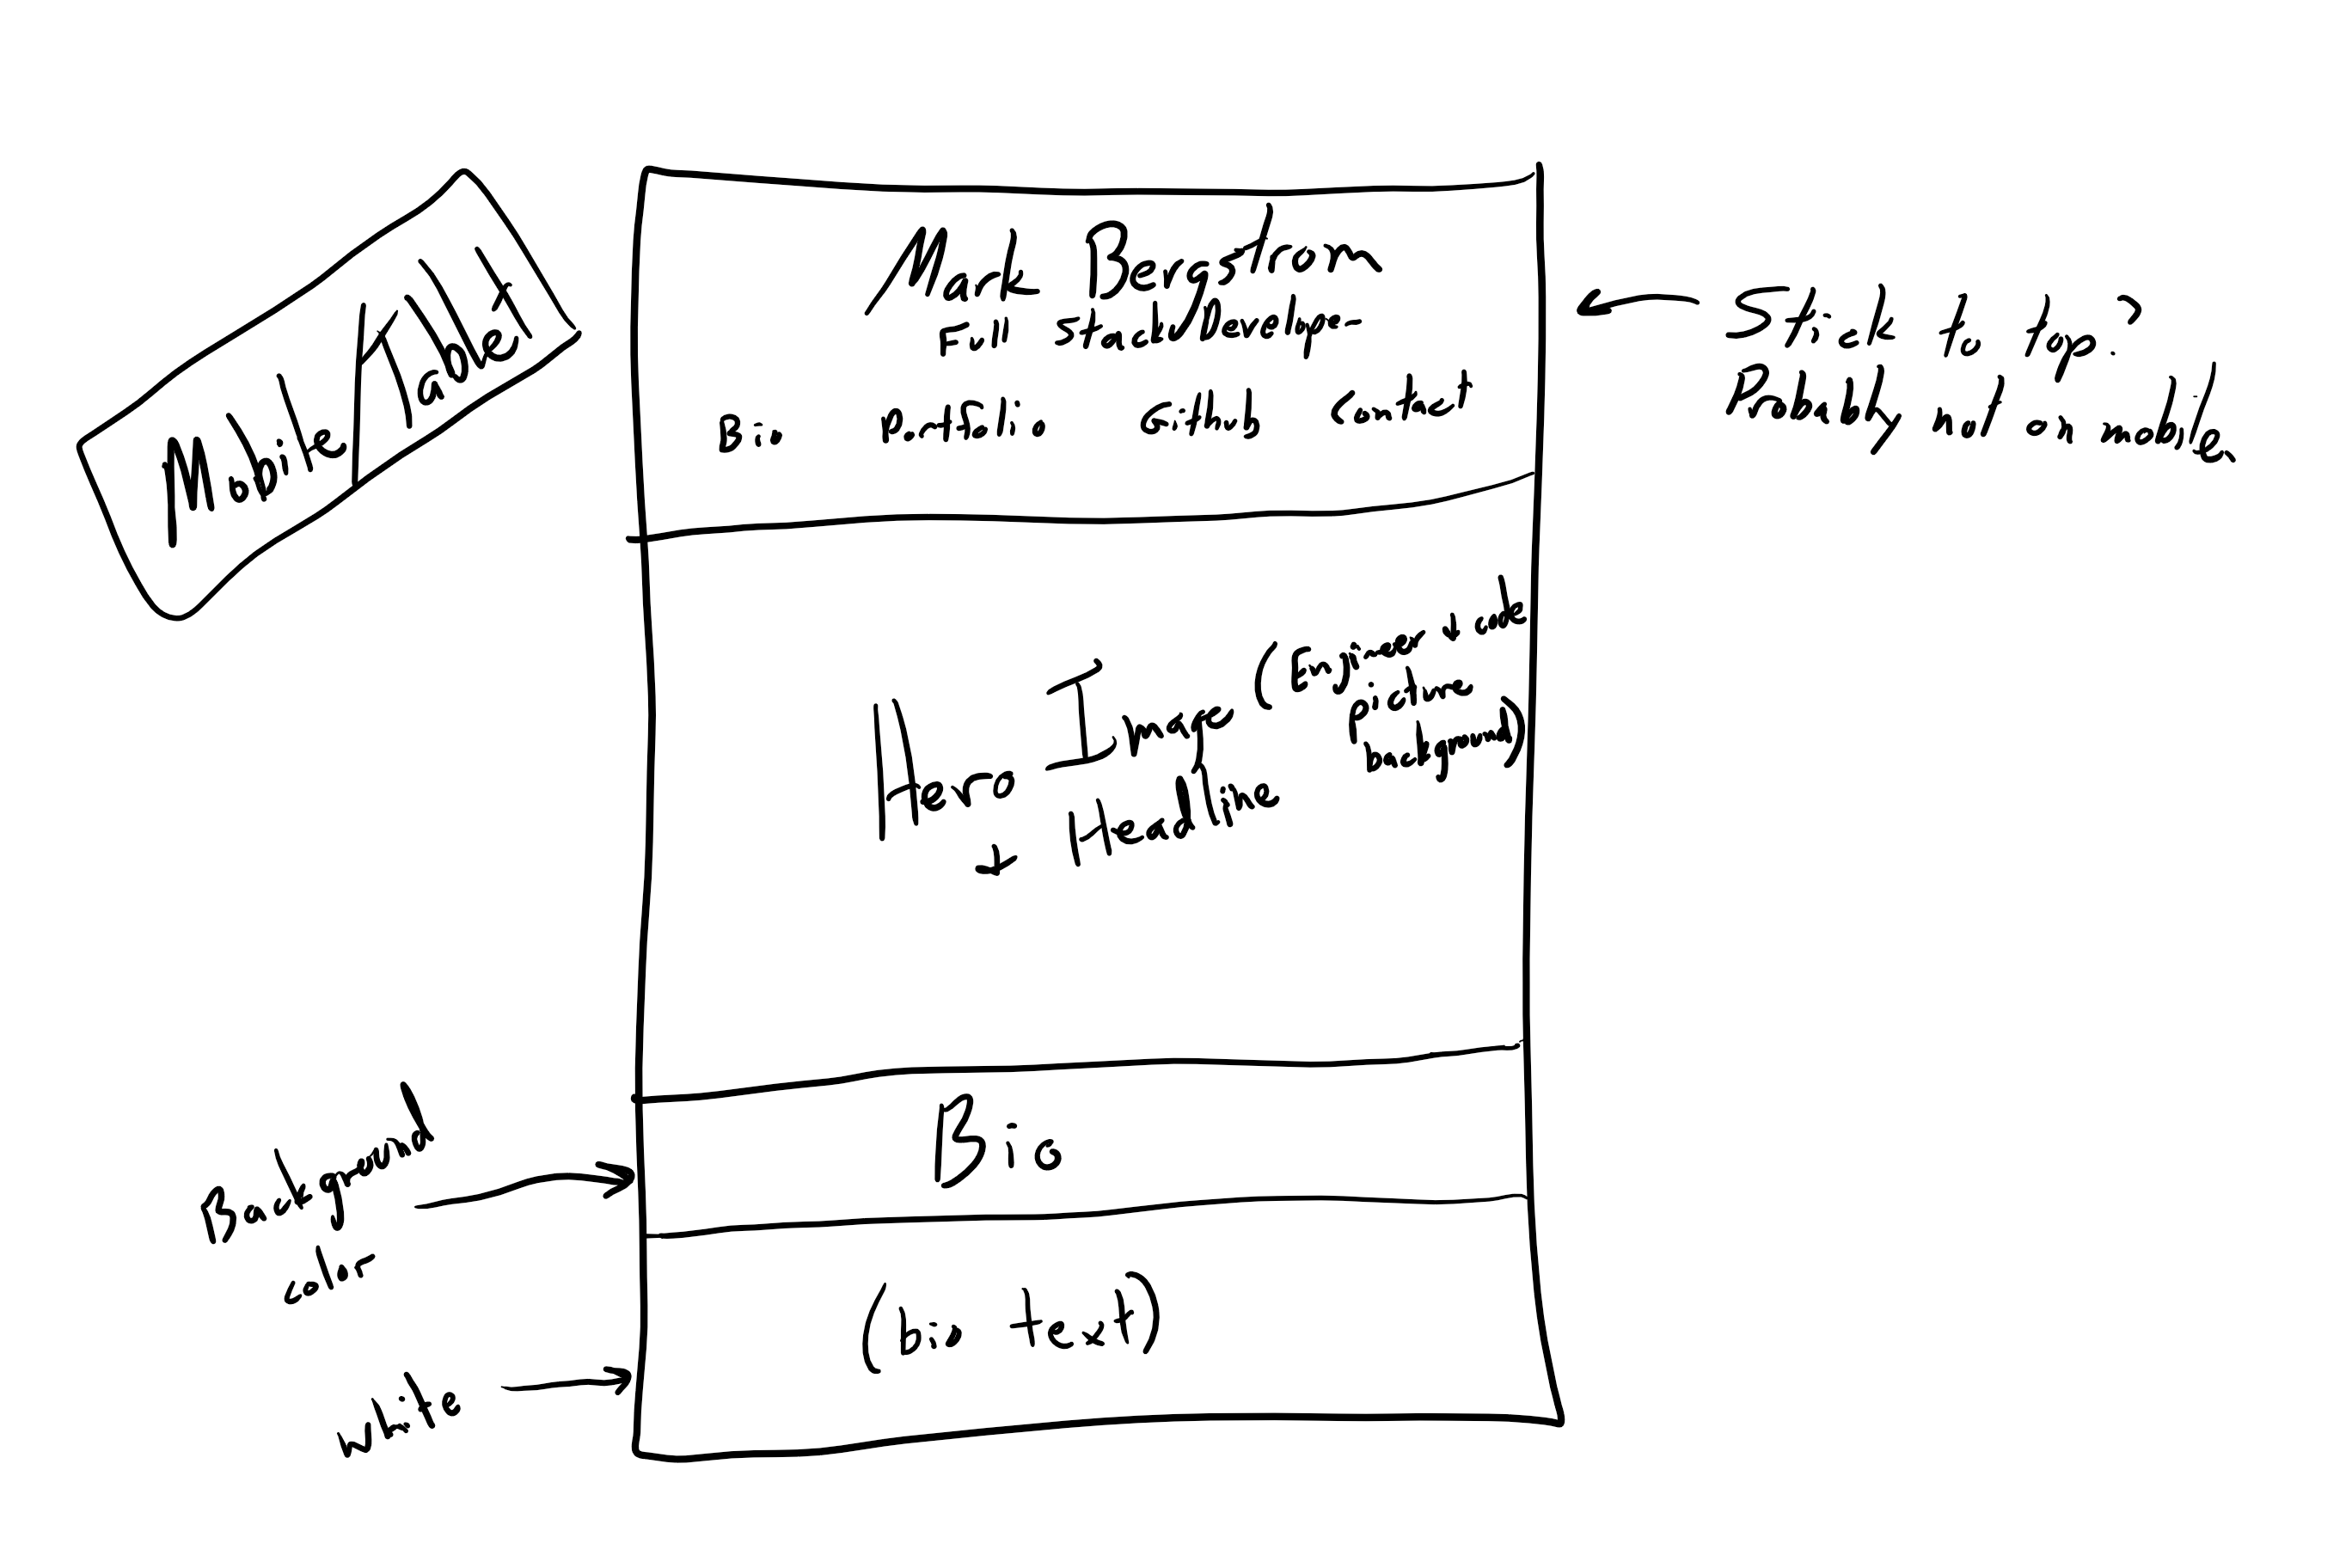 Mobile/Tablet
Mark Bengstrom
Full Stack Developer
Bio Portfolio Github Contact
Stick to top?
Probably not on mobile.
Hero Image
+ Headline
(Engineer + code
picture
background)
Bio
Background
color
(bio text)
white